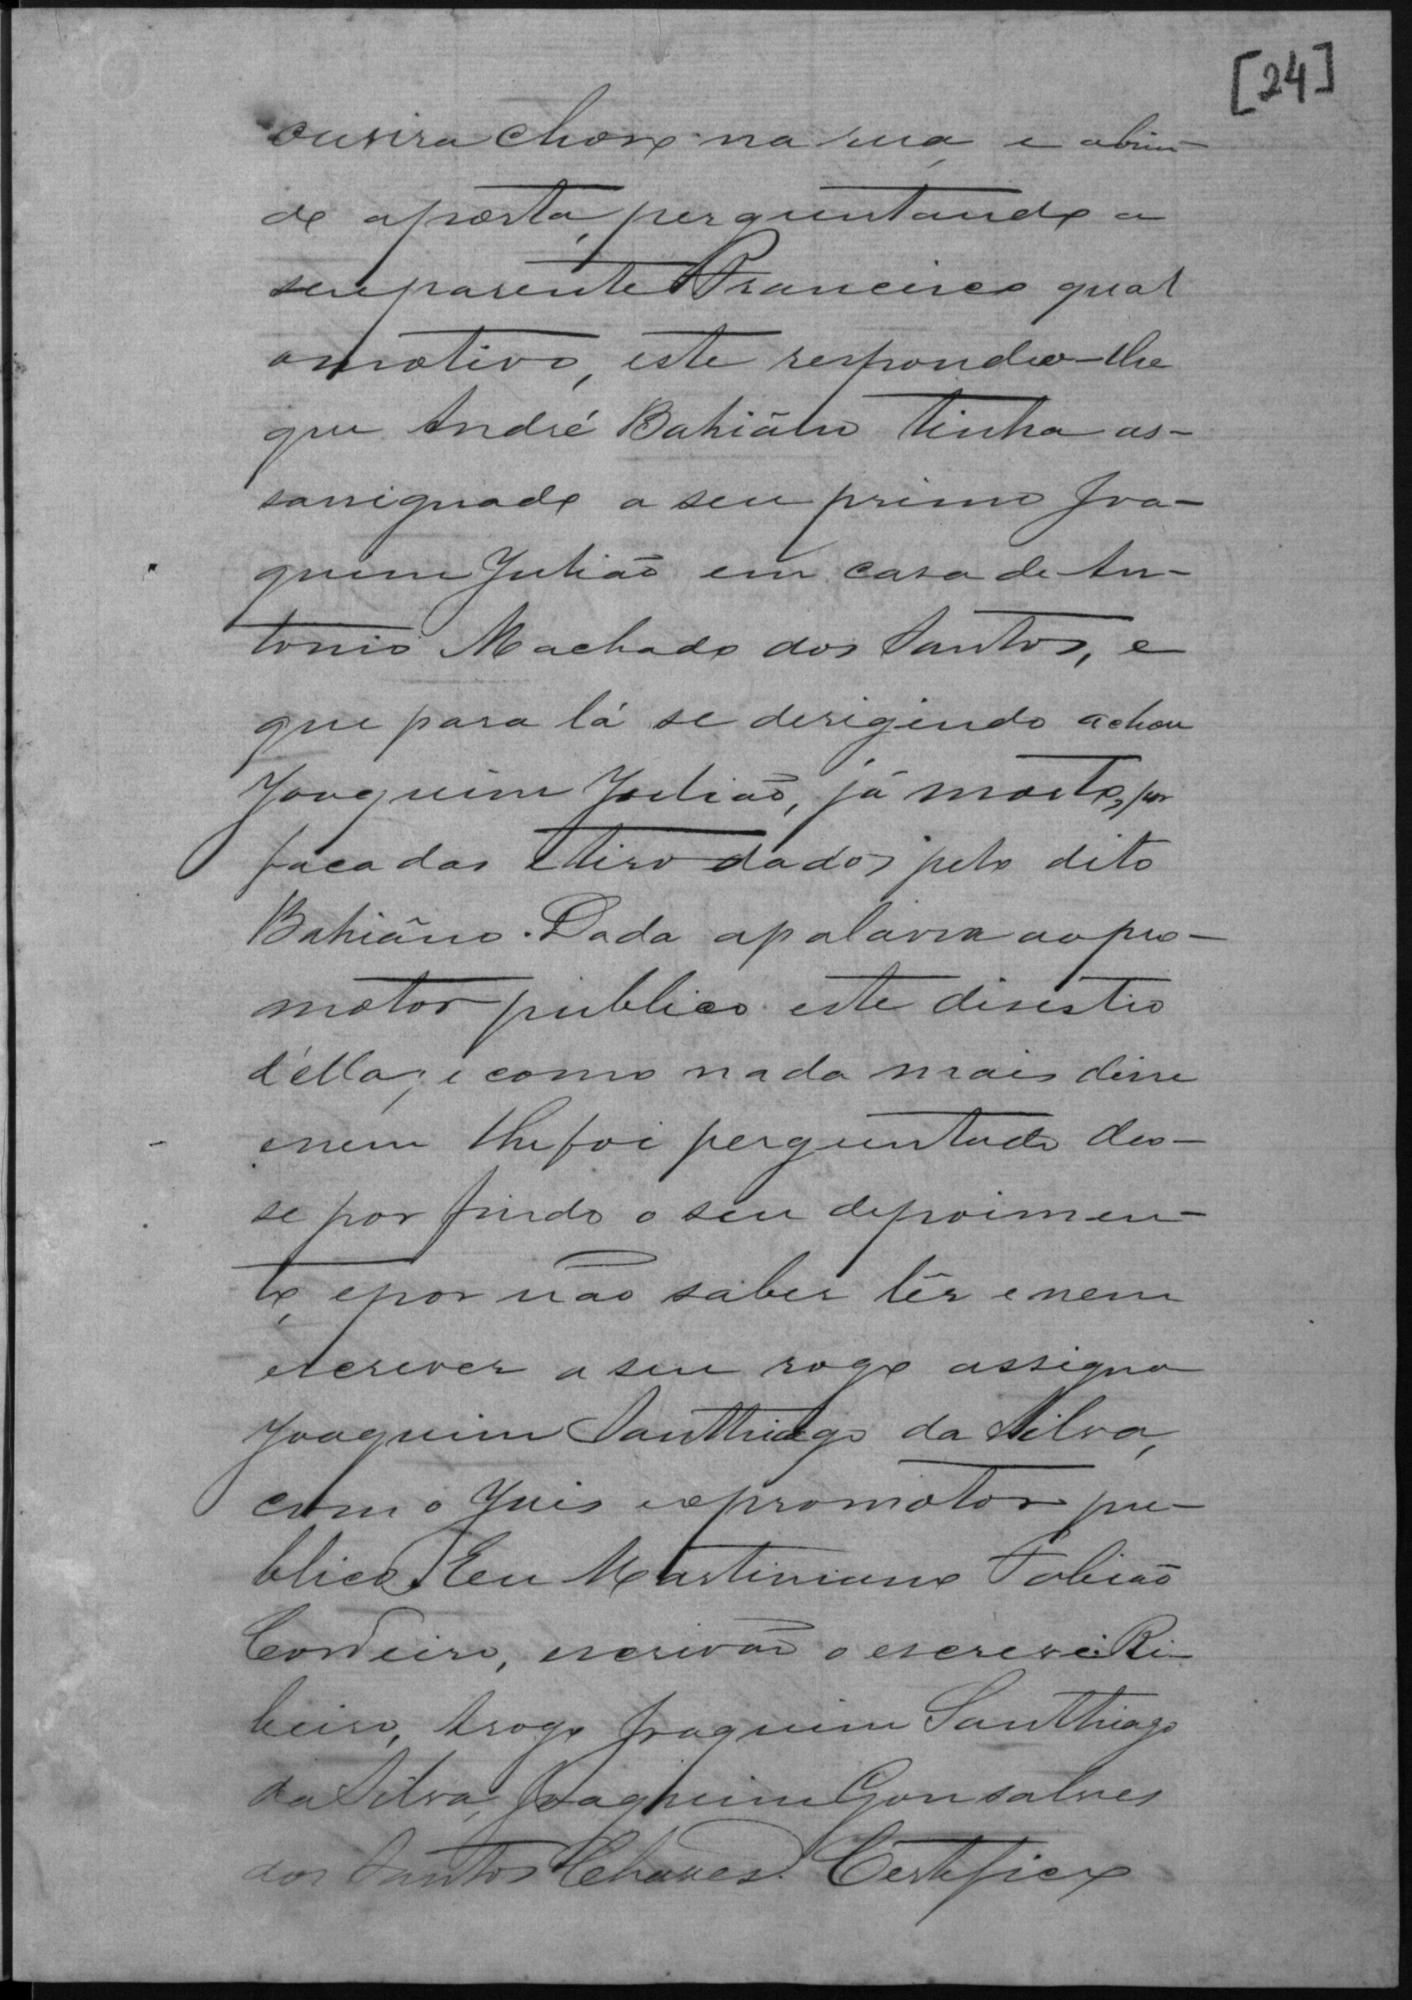 [24]
ouvira choro na rua, e abrin-
do aporta, perguntando a
seuparente Francisco qual
omotivo, este respondeo-lhe
que André Bahiâno tinha as-
sassignado a seu primo Joa-
quim Julião em casa de An-
tonio Machado dos Santos, e
que para lá se derigindo achou
Joaquim Julião, já morto, por
facadas etiro dados pelo dito
Bahiâno. Dada apalavra aopro-
motor publico este disestio
d'ella; e como nada mais disse
enem lhefoi perguntado deo-
se por findo o seu depoimen-
to, epor não saber lêr enem
escrever a seu rogo assigna
Joaquim Santthiago da Silva,
com o Juis eopromotor pu-
blico. Eu Martiniano Fabião
Cordeiro, escrivão o escrevi. Ri-
beiro, Arogo Joaquim Santthiago
da Silva, Joaquim Gonsalves
dos Santos Chaves. Certifico